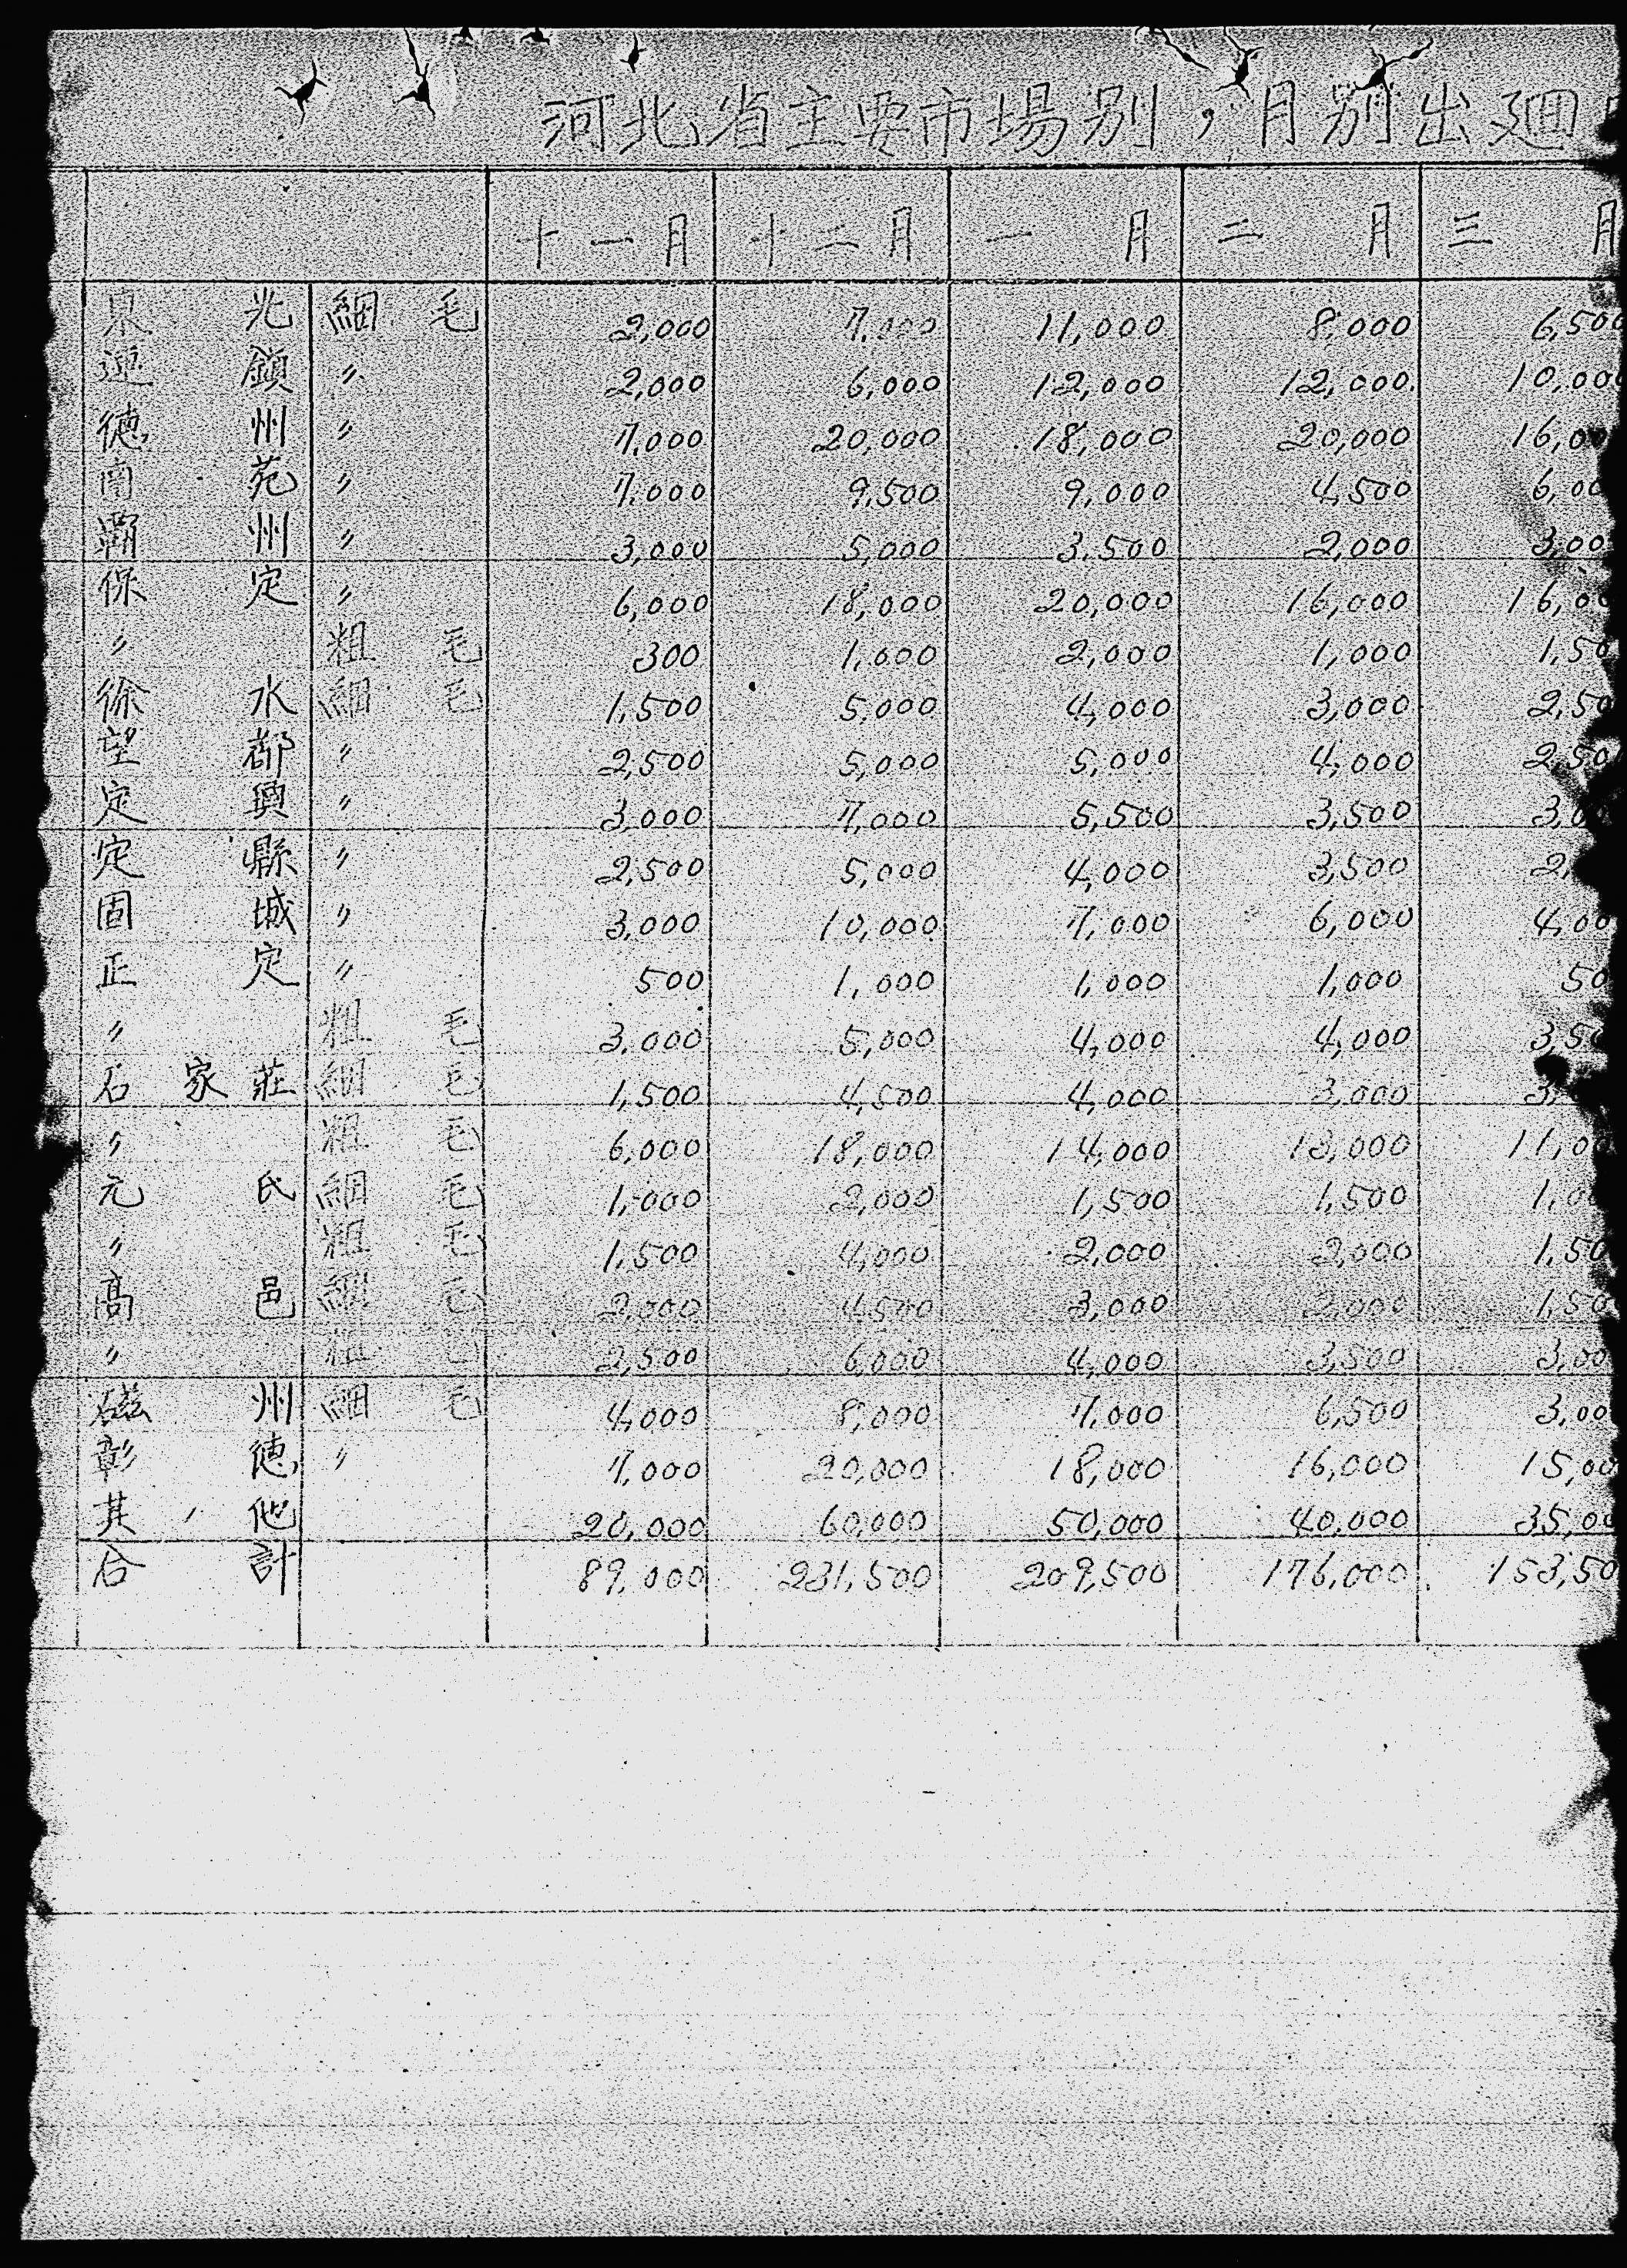 河北省主要市場別,月別出廻
十一月 十二月 一月 二月 三月
泊頭 細毛 2,000 7,000 11,000 8,000 6,500
連鎮 〃 2,000 6,000 12,000 12,000 10,000
徳州 〃 7,000 20,000 18,000 20,000 16,00
南苑 〃 7,000 9,500 9,000 4,500 6,00
覇州 〃 3,000 5,000 3,500 2,000 3,00
保定 〃 6,000 18,000 20,000 16,000 16,00
〃 粗毛 300 1,000 2,000 1,000 1,50
徐水 細毛 1,500 5,000 4,000 3,000 2,50
望都 〃 2,500 5,000 5,000 4,000 2,50
定興 〃 3,000 7,000 5,500 3,500 3,0
定縣 〃 2,500 5,000 4,000 3,500 2,
固城 〃 3,000 10,000 7,000 6,000 4,00
正定 〃 500 1,000 1,000 1,000 50
〃 粗毛 3,000 5,000 4,000 4,000 3,50
石家莊 細毛 1,500 4,500 4,000 3,000 3,
〃 粗毛 6,000 18,000 14,000 13,000 11,00
元氏 細毛 1,000 2,000 1,500 1,500 1,00
〃 粗毛 1,500 4,000 2,000 2,000 1,50
高邑 細毛 2,000 4,500 3,000 2,000 1,50
〃 粗毛 2,500 6,000 4,000 3,500 3,00
磁州 細毛 4,000 8,000 7,000 6,500 3,00
彰徳 〃 7,000 20,000 18,000 16,000 15,00
其他 20,000 60,000 50,000 40,000 35,00
合計 89,000 231,500 209,500 176,000 153,50